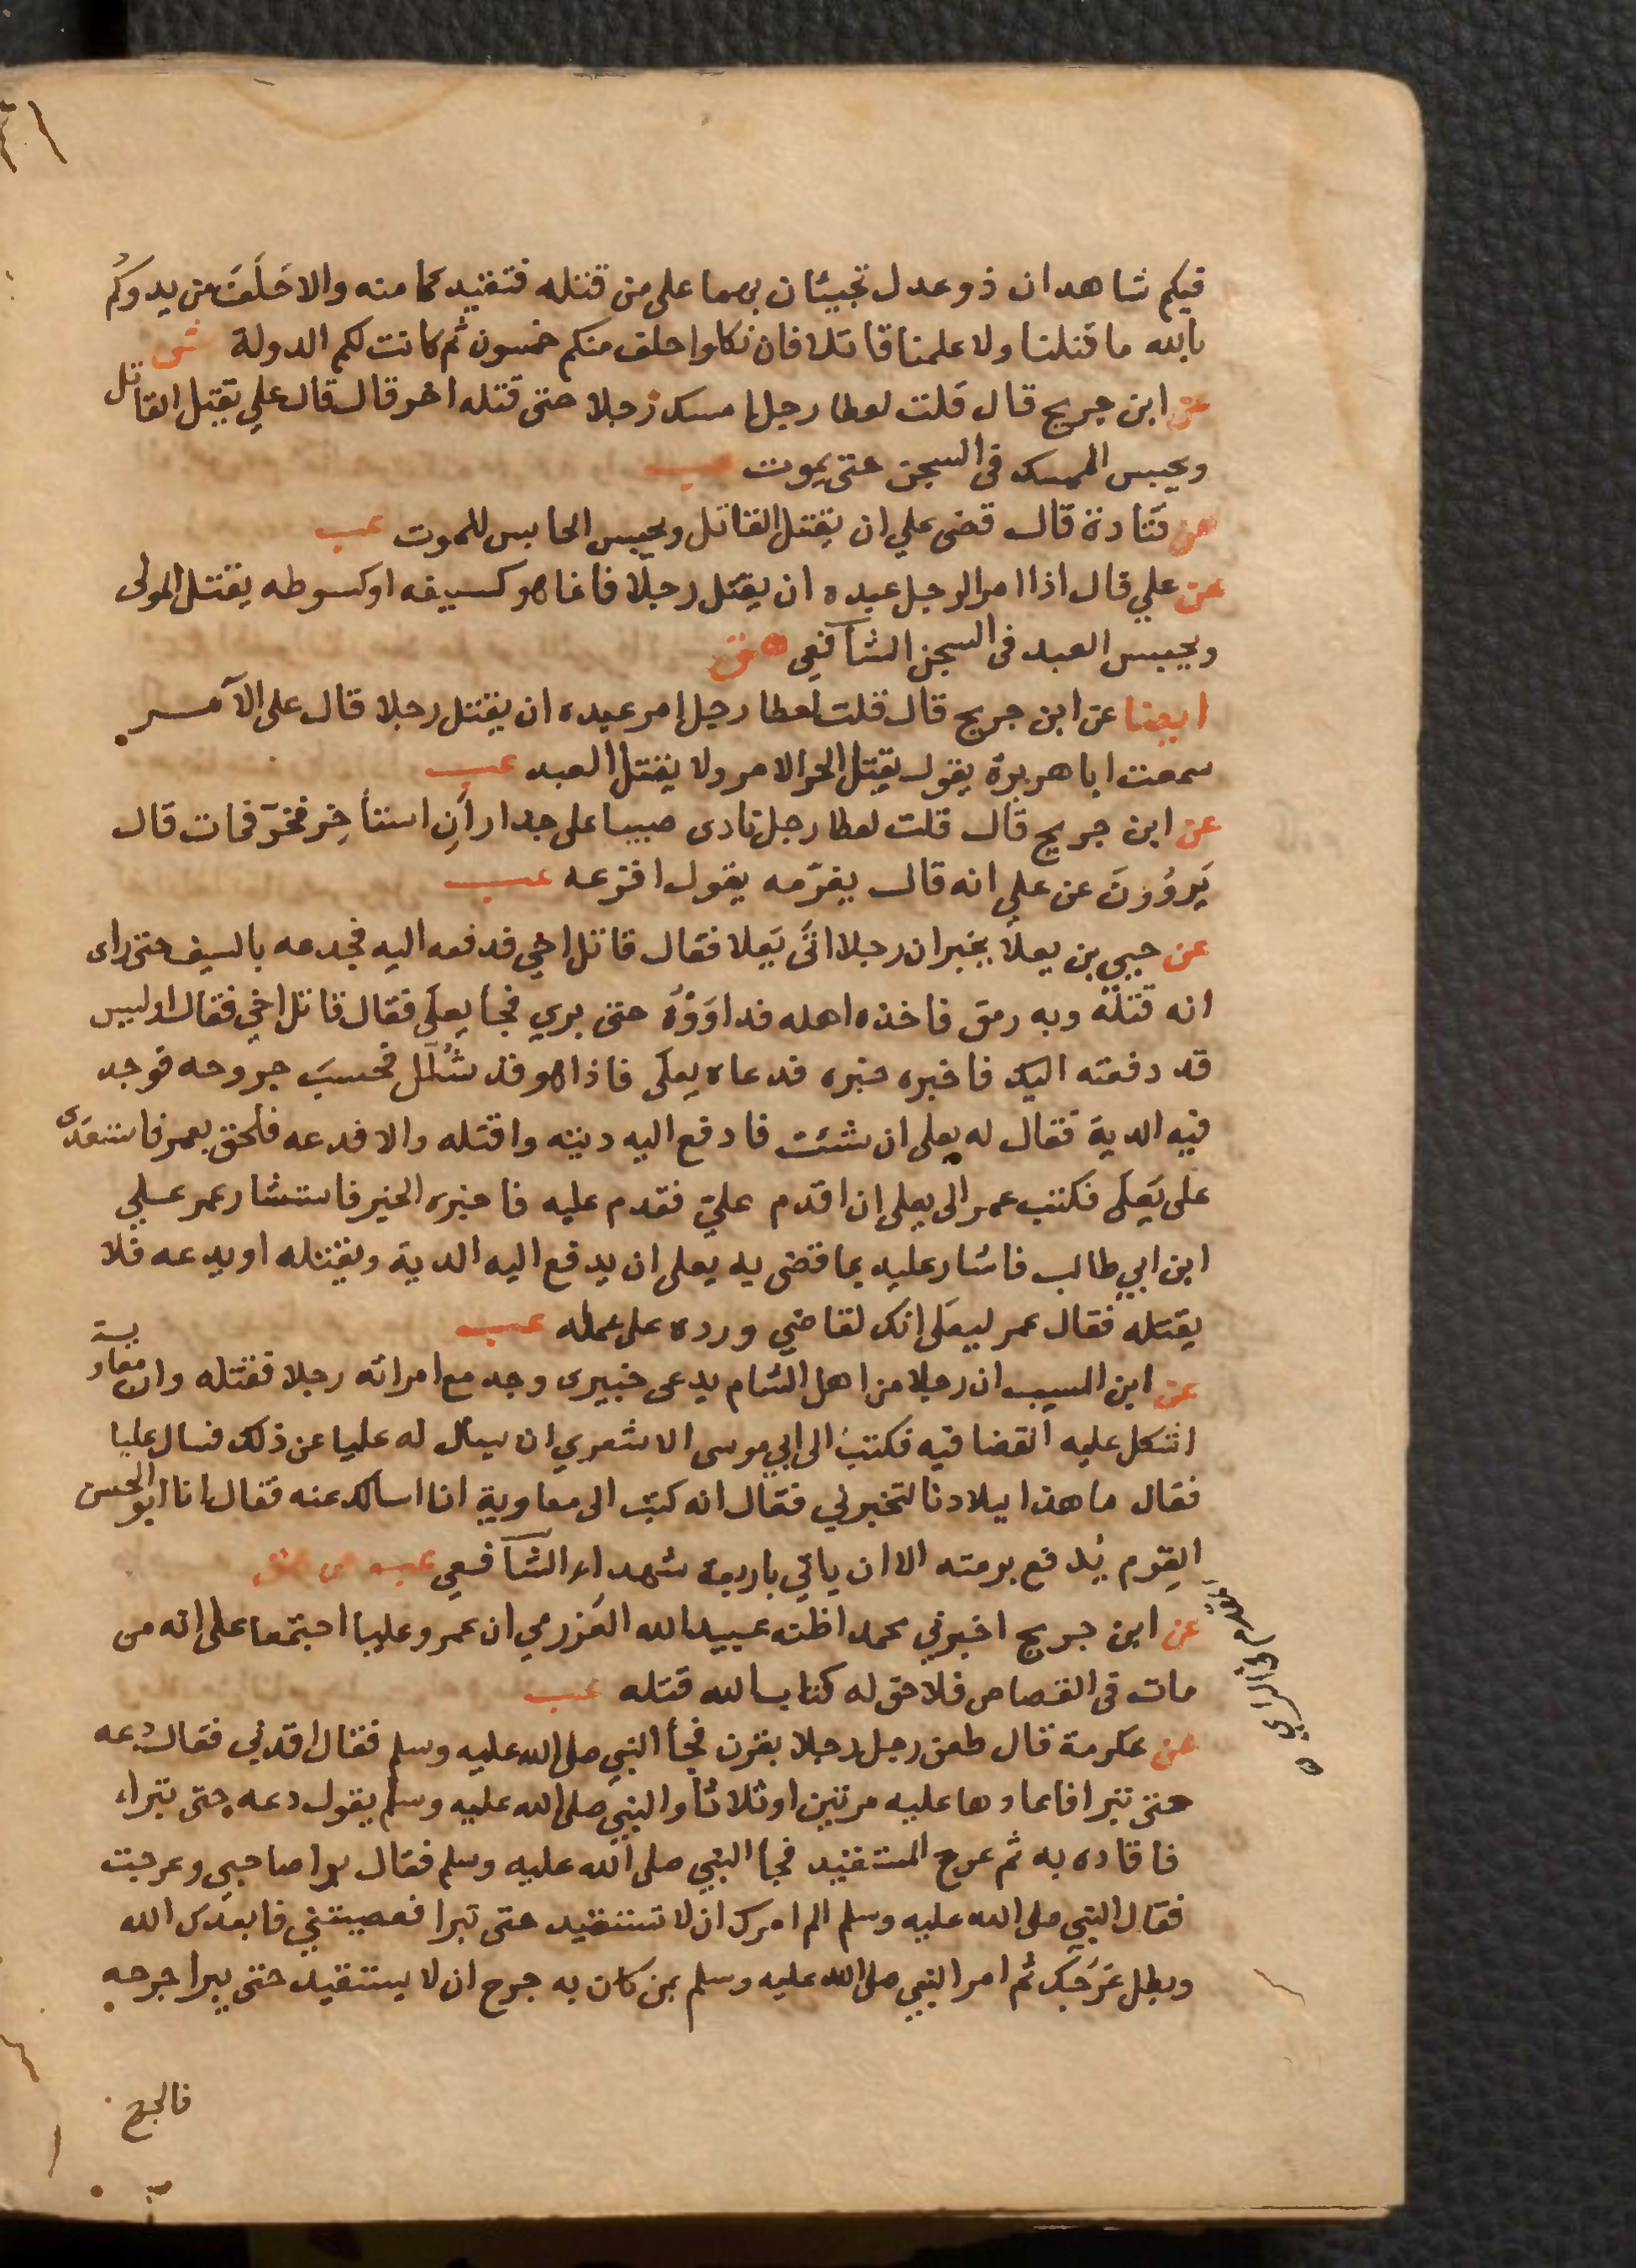 فيكم شاهدان ذو عدل تجيئان بهما على من قتله فتقيدكما منه والا حَلَفَ من يدروكم
بالله ما قتلنا ولا علمنا قاتلا فان نكلوا حلف منكم خمسون ثم كانت لكم الدولة ش
عن ابن جريج قال قلت لعطا رجل امسك رجلا حتى قتله اخر قال قال علي يقتل القاتل
ويحبس الممسك في السجن حتى يموت عب
عن قتادة قال قضى علي ان يقتل القاتل ويحبس الحابس للموت عب
عن علي قال اذا امر الرجل عبده ان يقتل رجلا فانما هو كسيفه او كسوطه يقتل المولى
ويحبس العبد في السجن الشافعي هق
ايضا عن ابن جريج قال قلت لعطا رجل امر عبده ان يقتل رجلا قال على الآمر
سمعت ابا هريرة يقول يقتل الحر الامر ولا يقتل العبد عب
عن ابن جريج قال قلت لعطا رجل نادى صبيا على جدار أنِ استأخِر فخرّ فمات قال
يَروُونَ عن علي انه قال يغرّمه يقول افزعه عب
عن حيي بن يعلا يخبر ان رجلا اتَى يَعلا فقال قاتل اخي فدفعه اليه فجدعه بالسيف حتى راى
انه قتله وبه رمق فاخذه اهله فداوَوْهُ حتى بري فجأ يعلَى فقال قاتل اخي فقال اوليس
قد دفعته اليك فاخبره خبره فدعاه يعلَى فاذا هو قد شُلّل فحسبَ جروحه فوجد
فيه الدية فقال له يعلى ان شئت فادفع اليه ديته واقتله والا فدعه فلحق بعمر فاستعدَى
على يَعلَى فكتب عمر الى يعلى ان اقدم عليّ فقدم عليه فاخبره الخبر فاستشار عمر علي
ابن ابي طالب فاشار عليه بما قضى به يعلى ان يدفع اليه الدية ويقتله او يدعه فلا
يقتله فقال عمر ليعلَى انك لقاضي ورده على عمله عب
عن ابن المسيب ان رجلا من اهل الشام يدعى خيبرى وجد مع امراته رجلا فقتله وان معاوية
اشكل عليه القضا فيه فكتب الى ابي موسى الاشعري ان يسأل له عليا عن ذلك فسال عليا
فقال ما هذا ببلادنا لتخبرني فقال انه كتب الى معاوية انا اسالك عنه فقال انا ابو الحسن
القوم يُدفع برمته الا ان ياتي باربعة شهداء الشافعي عب ص هق
عن ابن جريج اخبرني محمد اظنه عبيد الله العَزرمي ان عمر وعليا اجتمعا على انه من
مات في القصاص فلا حق له كتاب الله قتله عب
عن عكرمة قال طعن رجل رجلا بقرن فجأ النبي صلى الله عليه وسلم فقال اقدني فقال دعه
حتى تبرا فاعادها عليه مرتين او ثلاثاً والنبي صلى الله عليه وسلم يقول دعه حتى تبراء
فاقاده به ثم عرج المستقيد فجأ النبي صلى الله عليه وسلم فقال برا صاحبي وعرجت
فقال النبي صلى الله عليه وسلم الم امرك ان لا تستقيد حتى تبرا فعصيتني فابعدك الله
وبطل عَرَجُك ثم امر النبي صلى الله عليه وسلم بمن كان به جرح ان لا يستقيد حتى يبرا جرحه
فالجرح